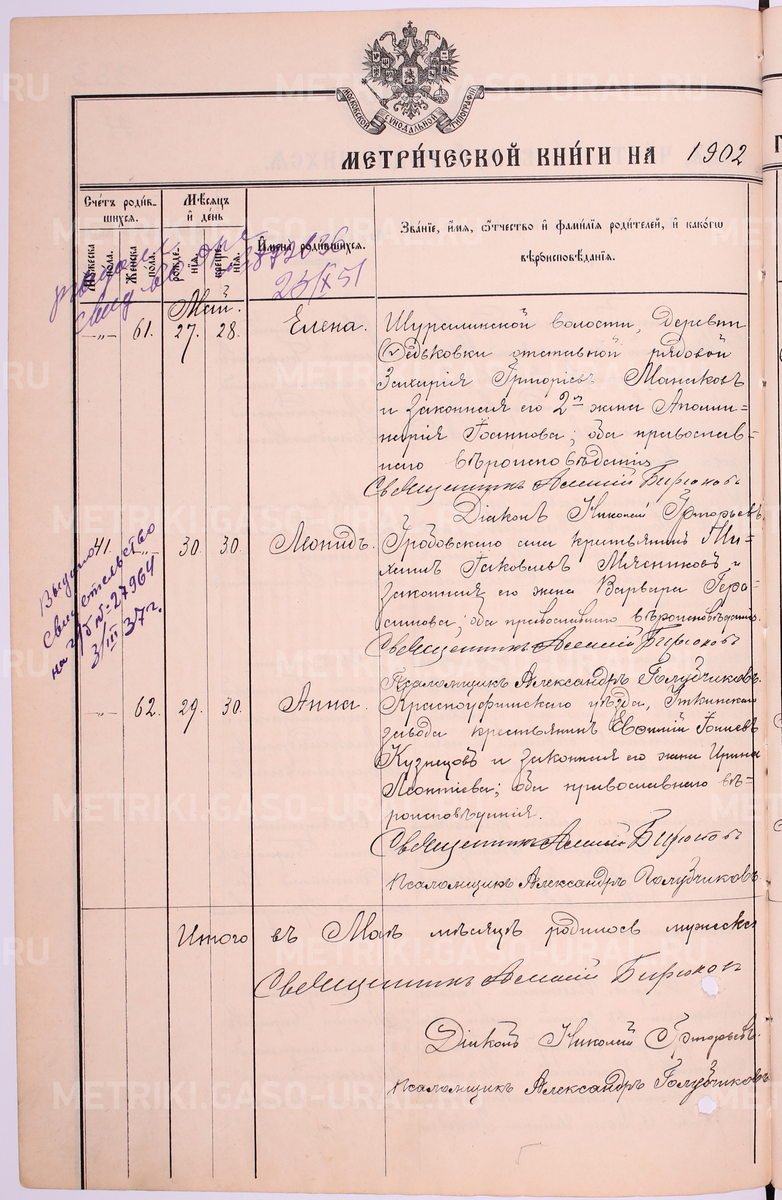 МОСКОВСКОЙ СѴНОДАЛЬНОЙ ТИПОГРАФІИ
МЕТРИ́ЧЕСКОЙ КНИ́ГИ НА 1902
Счéтъ роди́в-
шихся.
Мѣ́сяцъ
и́ дéнь
И҆менà роди́вшихся.
Звáнїе, и҆́мя, ѻ҆́тчество и҆ фами́лїѧ роди́телей, и҆ како́гѡ
вѣроисповѣ́данїѧ.
Мꙋжеска
пола.
Женска
пола.
рожде-
нія.
креще-
нія.
23/X 51
Май.
— „ — 61. 27. 28. Елена.
Шуралинской волости, деревни
Ѳедьковки отставной рядовой
Захарія Григоріевъ Манаковъ
и законная его 2я жена Аполли-
нарія Іоаннова; оба православ-
наго вѣроисповѣданія
Священникъ Алексій Бирюковъ
Діаконъ Николай Григорьевъ.
41. — „ — 30. 30. Леонидъ.
Гробовскаго села крестьянинъ Ми-
хаилъ Іаковлевъ Мясниковъ и
законная его жена Варвара Гера-
симова; оба православнаго вѣроисповѣданія.
Священникъ Алексій Бирюковъ
Псаломщикъ Александръ Голубчиковъ.
Выдано
свидетельство
на г/б № 27964
3/III 37 г.
— „ — 62. 29. 30. Анна.
Красноуфимскаго уѣзда, Уткинскаго
завода крестьянинъ Евѳимій Іоанновъ
Кузнецовъ и законная его жена Ирина
Леонтіева; оба православнаго вѣ-
роисповѣданія.
Священникъ Алексій Бирюковъ
Псаломщикъ Александръ Голубчиковъ.
Итого въ Маѣ мѣсяцѣ родилось мужеска
Священникъ Алексій Бирюковъ
Діаконъ Николай Григорьевъ.
Псаломщикъ Александръ Голубчиковъ
METRIKI.GASO-URAL.RU